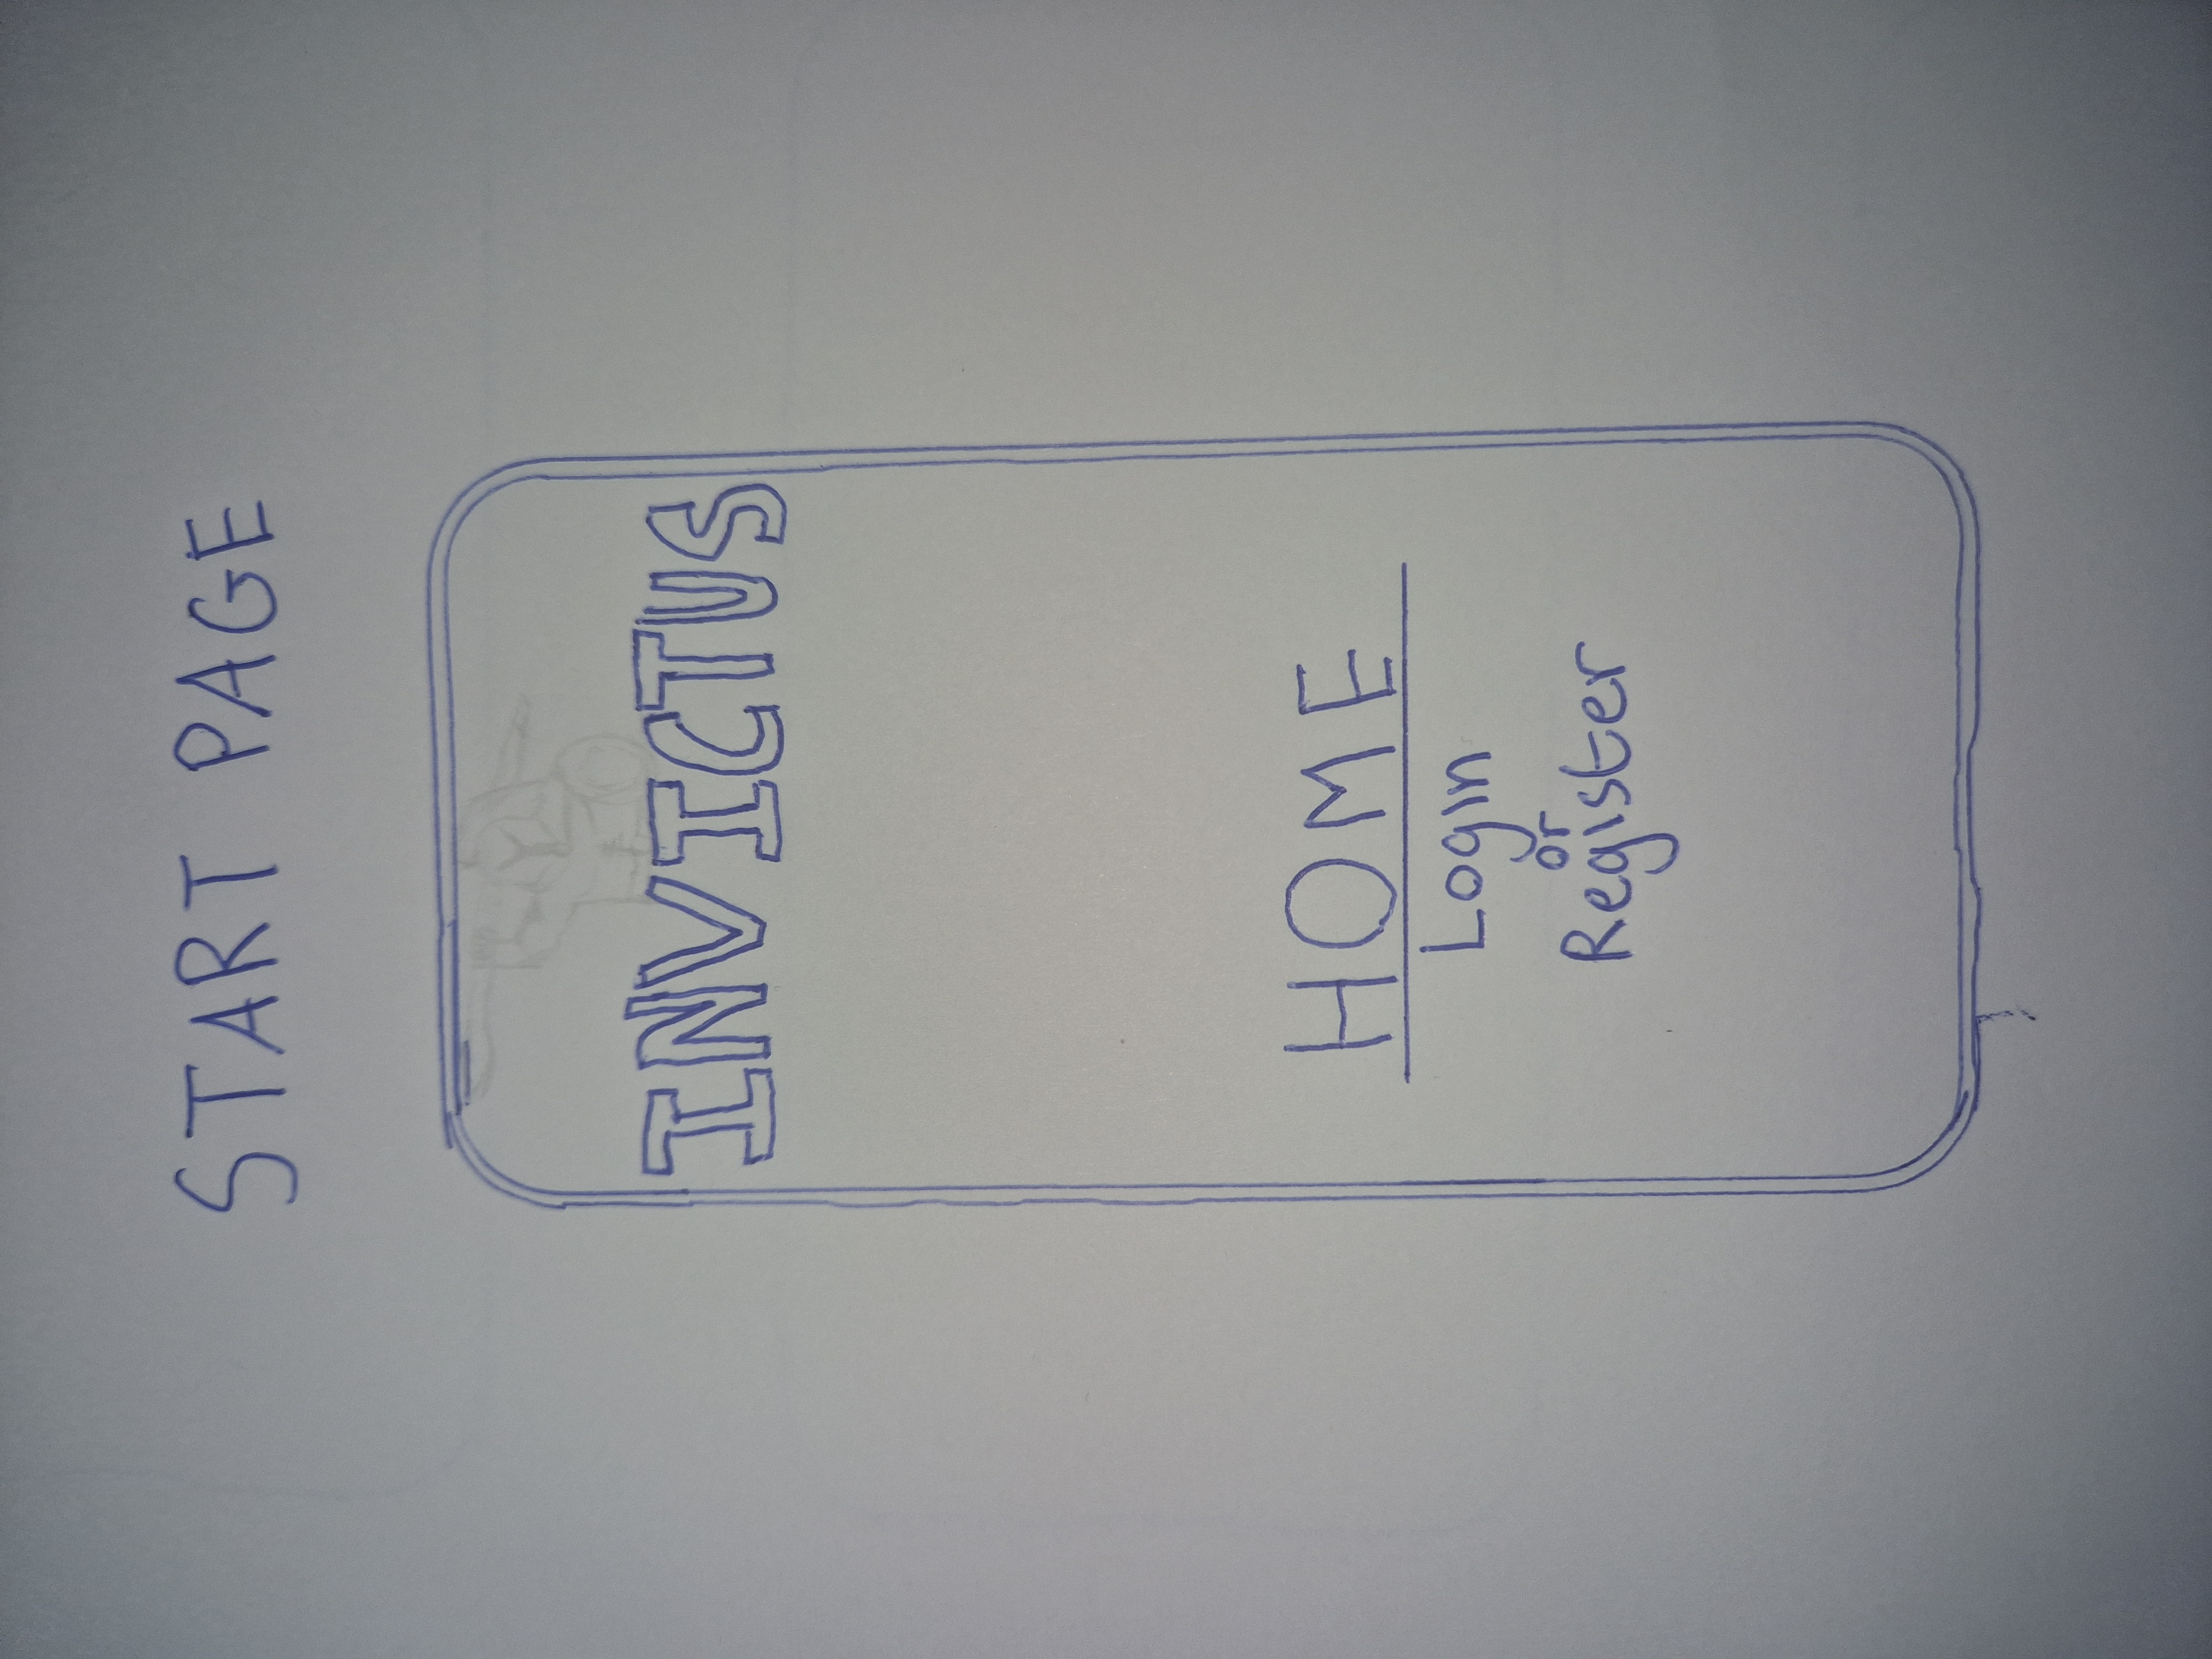 START PAGE
INVICTUS
HOME
Login
or
Register